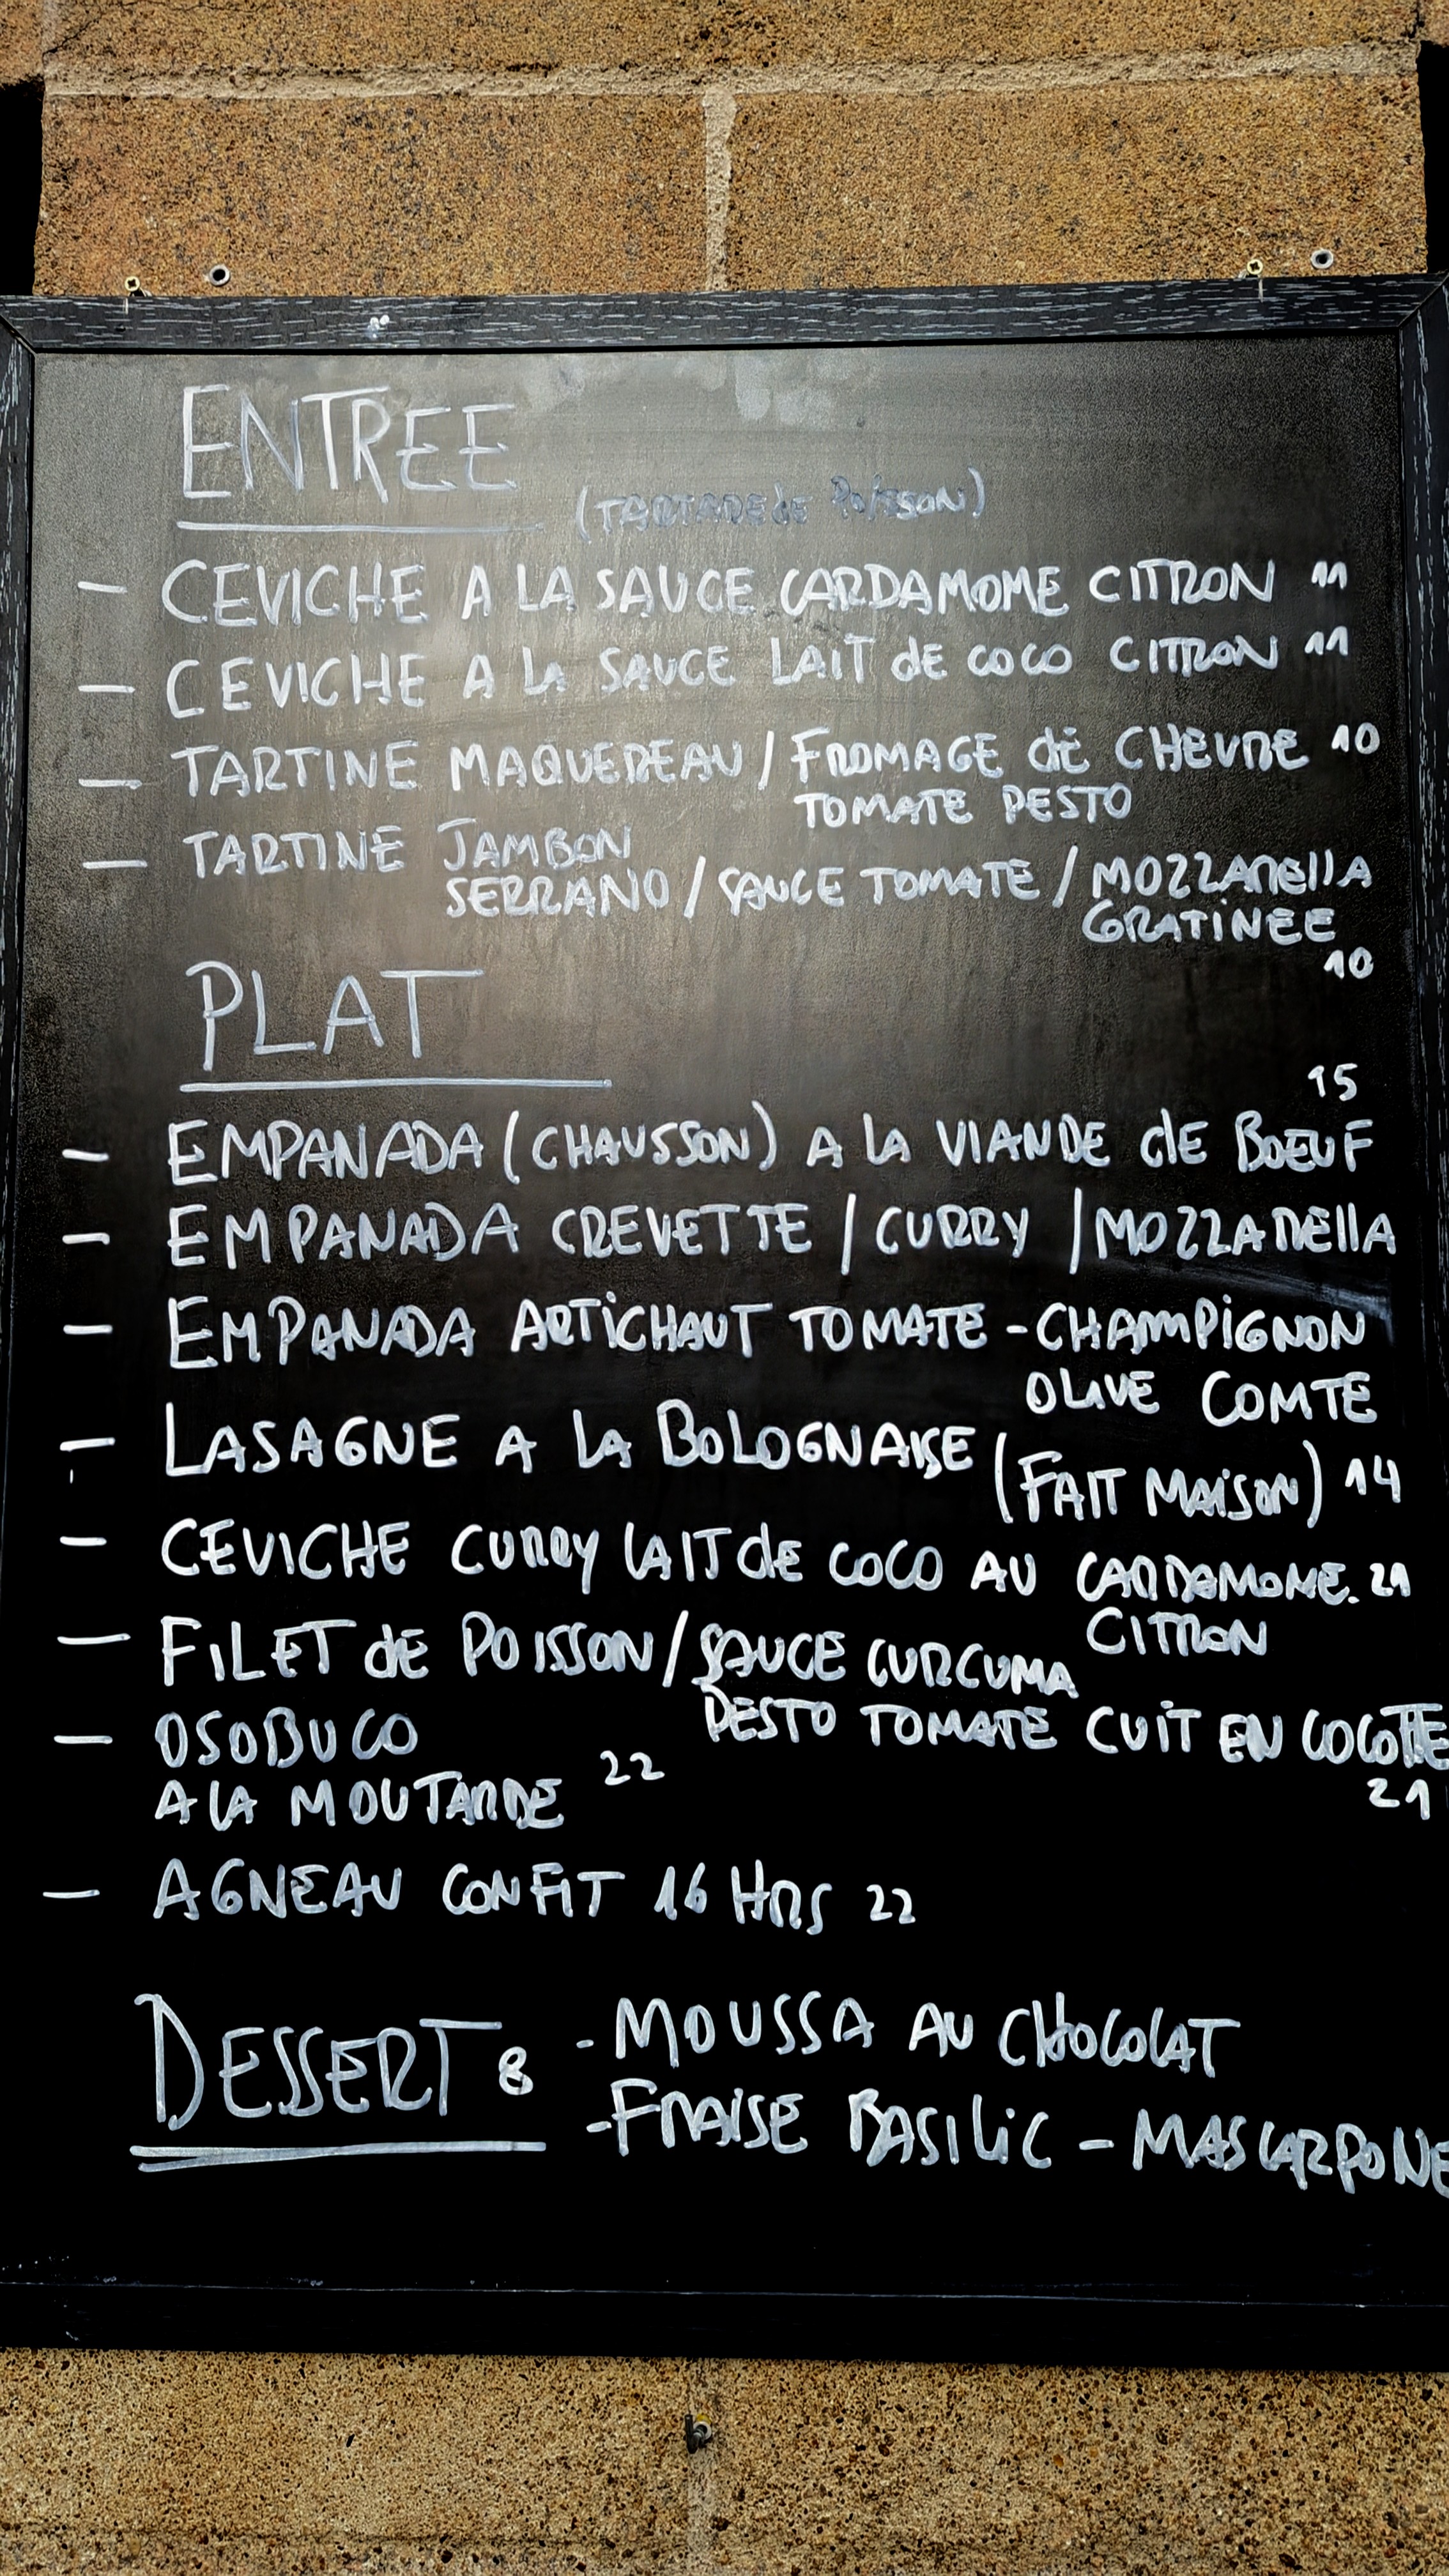 ENTREE
(TARTARE de POISSON)
- CEVICHE A LA SAUCE CARDAMOME CITRON 11
- CEVICHE A LA SAUCE LAIT de COCO CITRON 11
- TARTINE MAQUEREAU / FROMAGE de CHEVRE 10
TOMATE PESTO
- TARTINE JAMBON
SERRANO / SAUCE TOMATE / MOZZARELLA
GRATINEE
10
PLAT
15
- EMPANADA (CHAUSSON) A LA VIANDE de BOEUF
- EMPANADA CREVETTE / CURRY / MOZZARELLA
- EMPANADA ARTICHAUT TOMATE - CHAMPIGNON
OLIVE COMTE
- LASAGNE A LA BOLOGNAISE (FAIT MAISON) 14
- CEVICHE CURRY LAIT de COCO AU CARDAMOME. 21
CITRON
- FILET de POISSON / SAUCE CURCUMA
PESTO TOMATE CUIT EN COCOTTE
21
- OSOBUCO
A LA MOUTARDE 22
- AGNEAU CONFIT 16 HRS 22
DESSERT 8
- MOUSSA AU CHOCOLAT
- FRAISE BASILIC - MASCARPONE